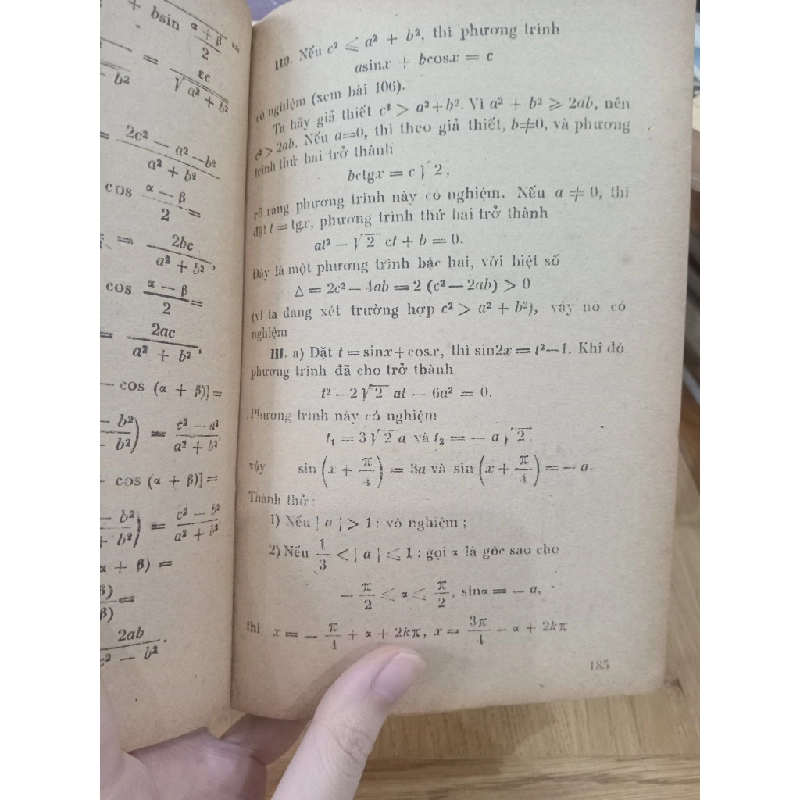 + bsin α+β/2 =
= εc/√a² + b²
b²
= 2c² − a² − b²/a² + b²
cos α − β/2 =
= 2bc/a² + b²,
cos α − β/2 =
= 2ac/a² + b²,
− cos (α + β)] =
− b²/+ b²) = c² − a²/a² + b²
+ cos (α + β)] =
− b²/+ b²) = c² − b²/a² + b²
α + β) =
β) =
2ab/c² − b².
110. Nếu c² ⩽ a² + b², thì phương trình
asinx + bcosx = c
có nghiệm (xem bài 106).
Ta hãy giả thiết c² > a² + b². Vì a² + b² ⩾ 2ab, nên
c² > 2ab. Nếu a=0, thì theo giả thiết, b≠0, và phương
trình thứ hai trở thành
bctgx = c√2,
rõ ràng phương trình này có nghiệm. Nếu a ≠ 0, thì
đặt t = tgx, phương trình thứ hai trở thành
at² − √2 ct + b = 0.
Đây là một phương trình bậc hai, với biệt số
Δ = 2c² − 4ab = 2 (c² − 2ab) > 0
(vì ta đang xét trường hợp c² > a² + b²), vậy nó có
nghiệm
III. a) Đặt t = sinx + cosx, thì sin2x = t² − 1. Khi đó
phương trình đã cho trở thành
t² − 2√2 at − 6a² = 0.
Phương trình này có nghiệm
t₁ = 3√2 a và t₂ = − a√2,
vậy sin (x + π/4) = 3a và sin (x + π/4) = − a.
Thành thử :
1) Nếu | a | > 1 : vô nghiệm ;
2) Nếu 1/3 < | a | ⩽ 1 : gọi α là góc sao cho
− π/2 ⩽ α ⩽ π/2, sinα = − a,
thì x = − π/4 + α + 2kπ, x = 3π/4 − α + 2kπ
185